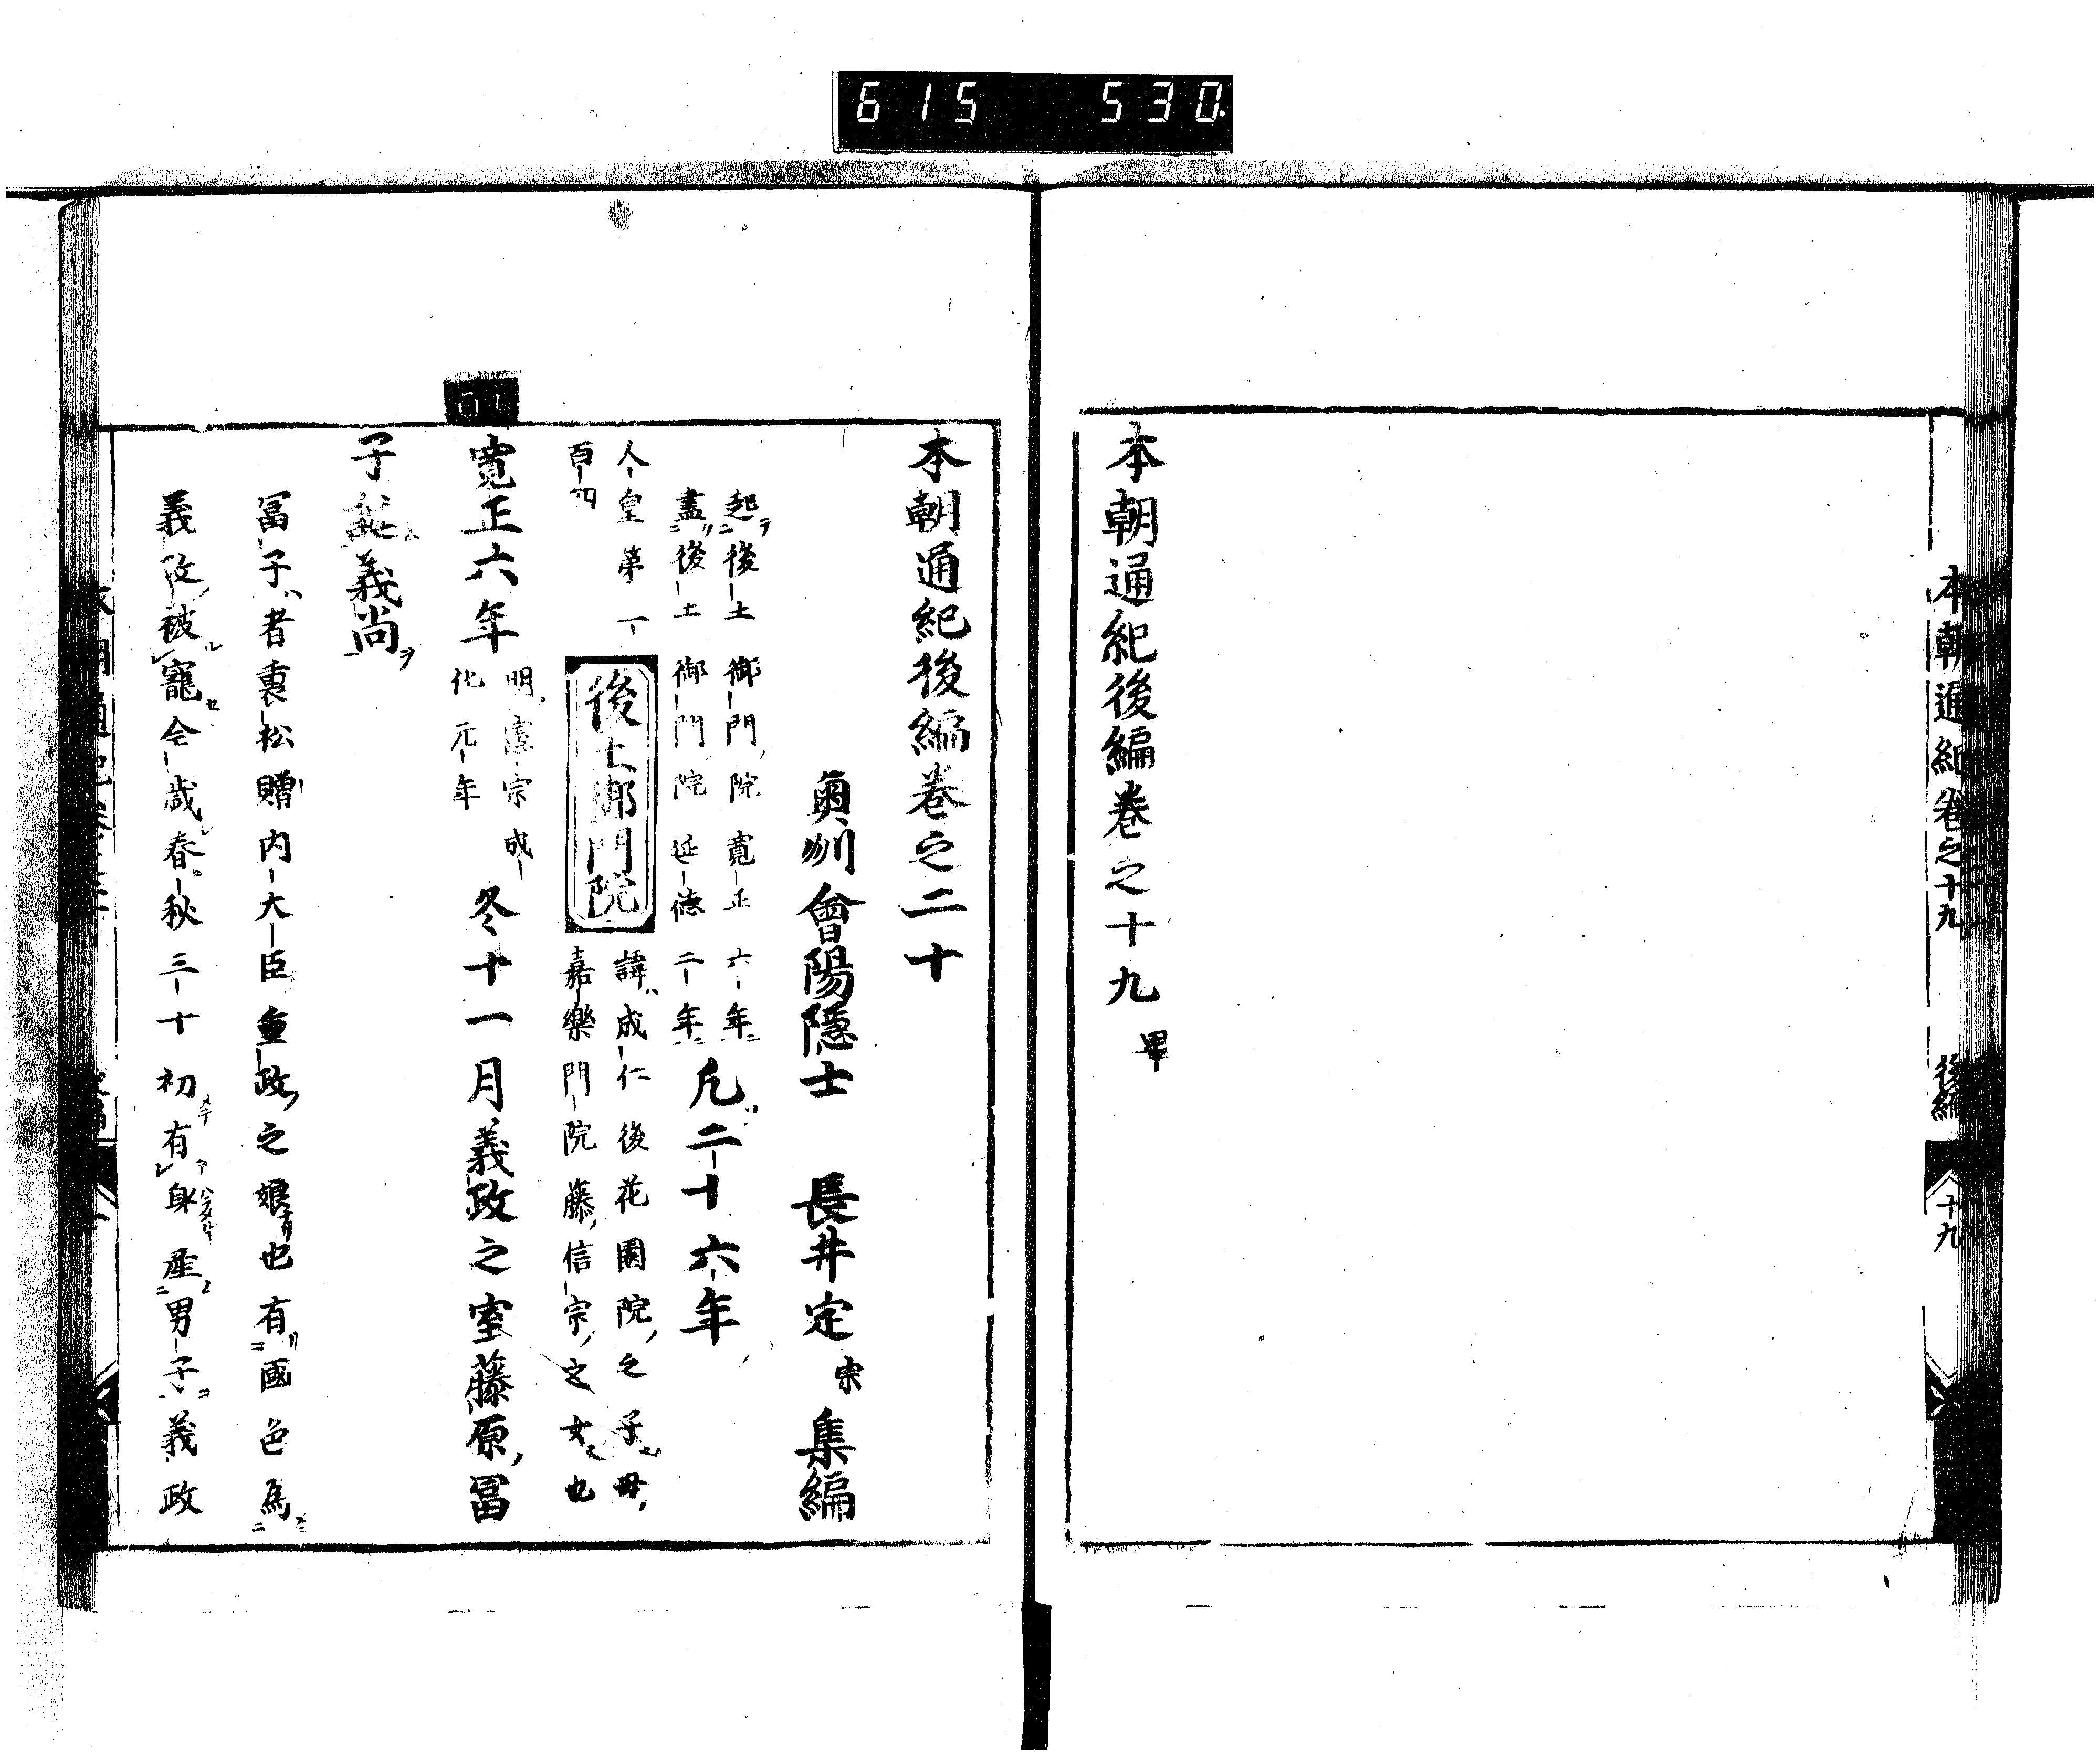 615 530.
本朝通紀卷之十九 後編 十九
本朝通紀後編卷之十九 畢
本朝通紀後編卷之二十
奥州會陽隱士 長井定宗 集編
起後土御門院寛正六年
盡後土御門院延德二年
凡二十六年
人皇第一
百四
後土御門院
諱成仁後花園院之子母
嘉樂門院藤信宗之女也
寛正六年
明憲宗成
化元年
冬十一月義政之室藤原冨
子誕義尚
冨子者裏松贈内大臣重政之娘也有國色爲
義政被寵今歳春秋三十初有身産男子義政